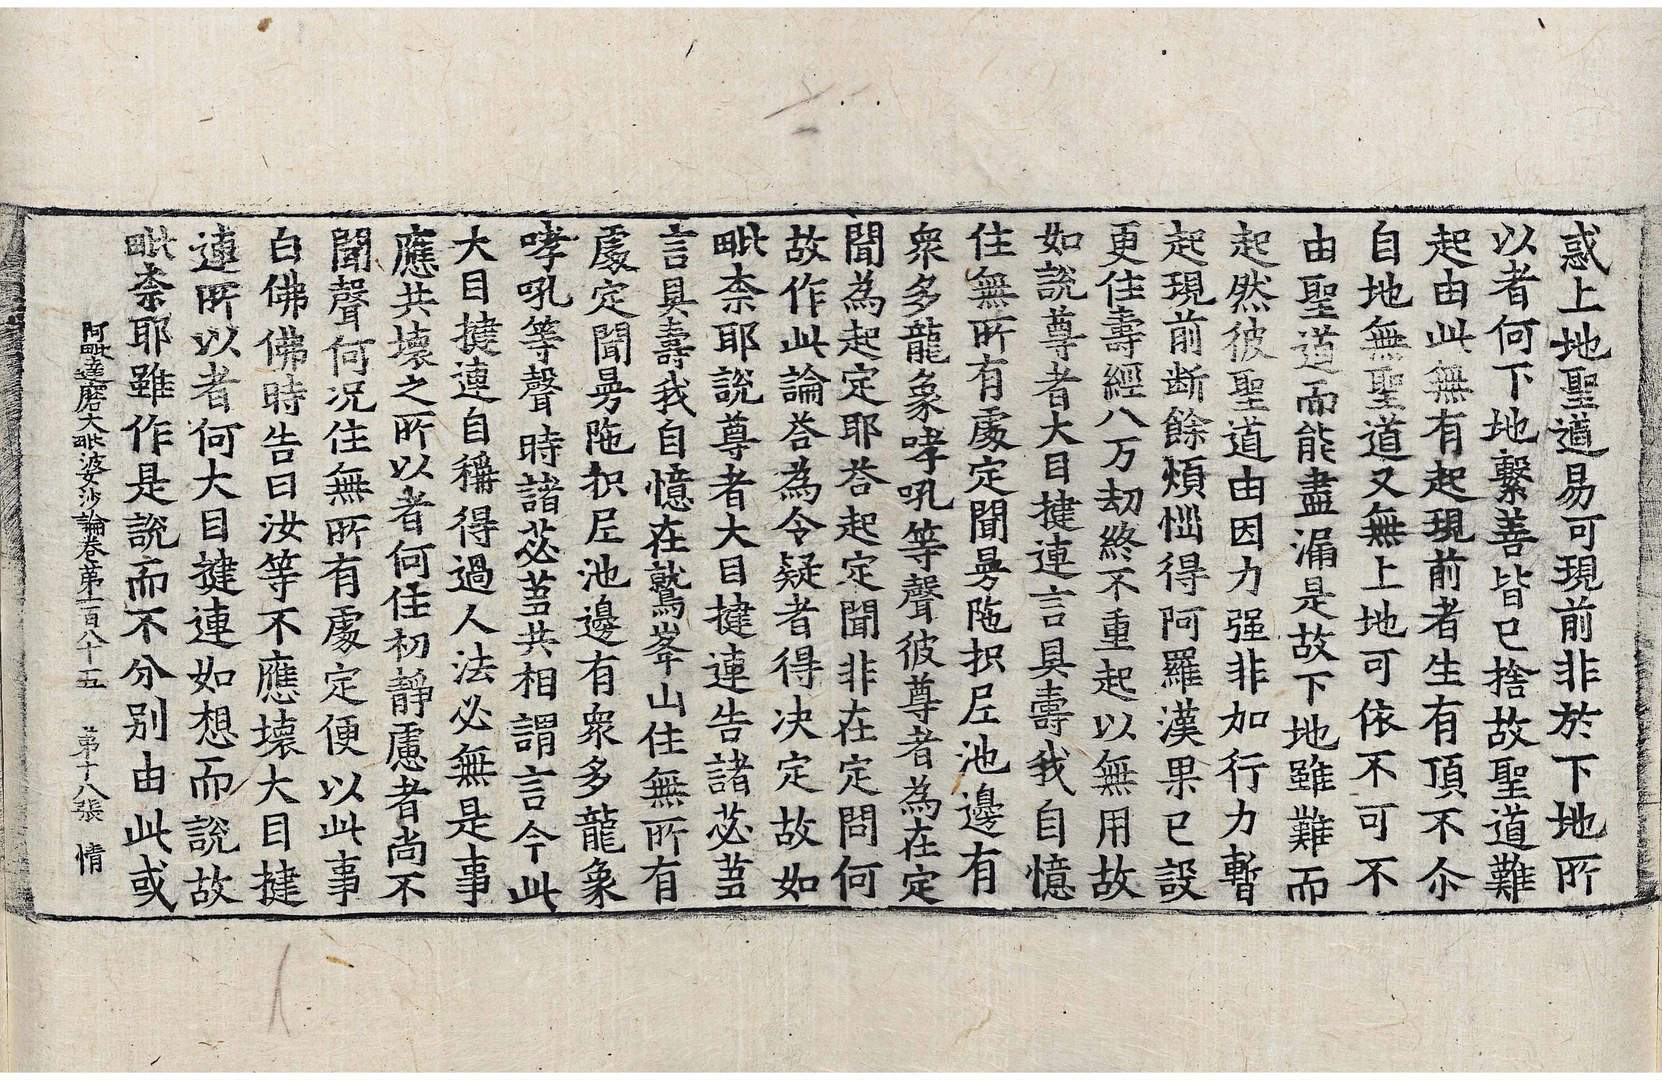 惑上地聖道易可現前非於下地所
以者何下地繫善皆已捨故聖道難
起由此無有起現前者生有頂不尒
自地無聖道又無上地可依不可不
由聖道而能盡漏是故下地雖難而
起然彼聖道由因力强非加行力暫
起現前断餘煩惱得阿羅漢果已設
更住壽經八万劫終不重起以無用故
如說尊者大目揵連言具壽我自憶
住無所有處定聞曼陁枳𡰱池邊有
衆多龍象哮吼等聲彼尊者為在定
聞為起定耶荅起定聞非在定問何
故作此論荅為令疑者得决定故如
毗柰耶說尊者大目揵連告諸苾蒭
言具壽我自憶在鷲峯山住無所有
處定聞曼陁枳𡰱池邊有衆多龍象
哮吼等聲時諸苾蒭共相謂言今此
大目揵連自稱得過人法必無是事
應共壞之所以者何住初靜慮者尚不
聞聲何況住無所有處定便以此事
白佛佛時告曰汝等不應壞大目揵
連所以者何大目揵連如想而說故
毗柰耶雖作是說而不分別由此或
阿毗達磨大毗婆沙論卷第一百八十五 第十八張 情